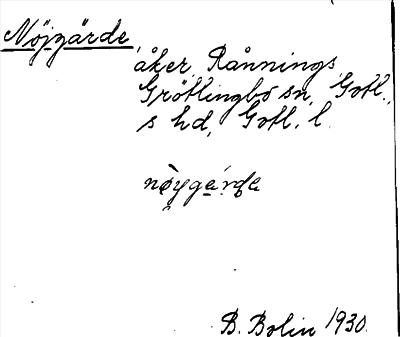 Nöjgärde
åker, Rånnings
Grötlingbo sn, Gotl.,
s hd, Gotl. l.
B. Bolin 1930.